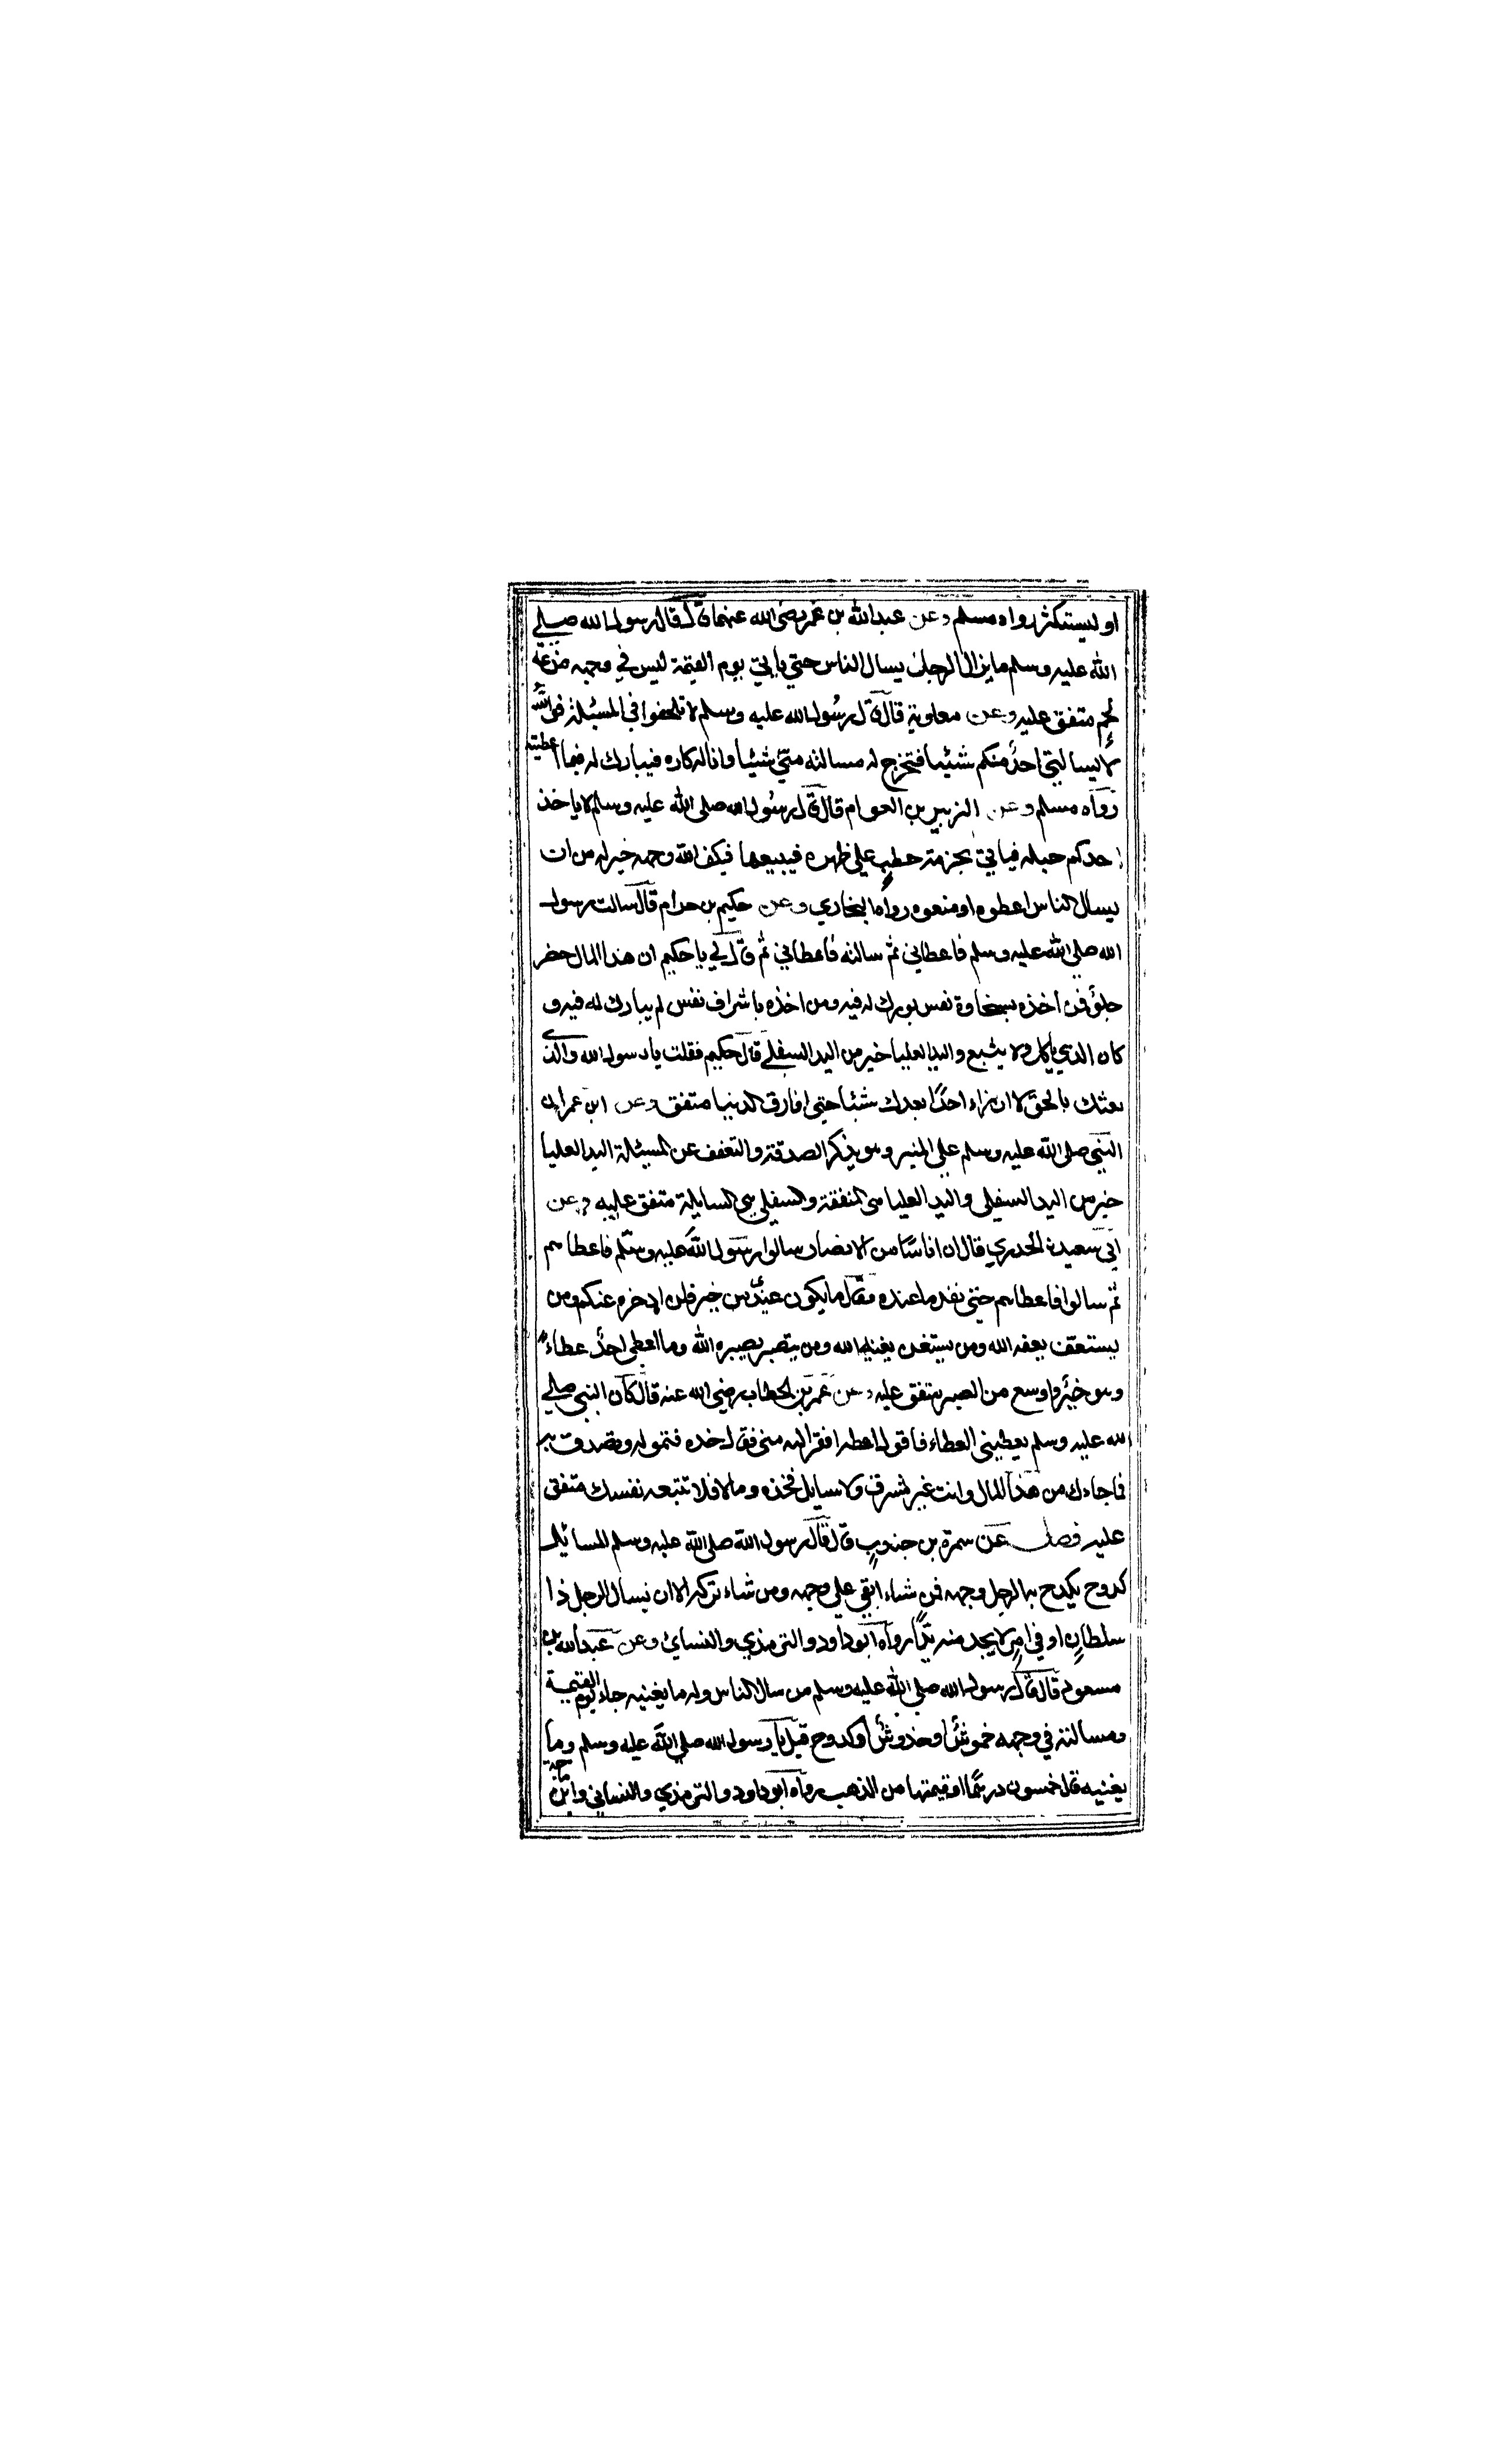 او ليستكثر رواه مسلم وعن عبدالله بن عمر رضى الله عنهما قال قال رسول الله صلي
الله عليه وسلم ما يزال الرجل يسال الناس حتي ياتي يوم القيمة ليس في وجهه مزعة
لحم متفق عليه وعن معاوية قال قال رسول الله عليه وسلم لا تلحفوا في المسئلة فوالله
لا يسالني احد منكم شئيا فتخرج له مسالته مني شئيا وانا له كاره فيبارك له فيما اعطيته
رواه مسلم وعن الزبير بن العوام قال قال رسول الله صلى الله عليه وسلم لا ياخذ
احدكم حبله فياتي بحزمة حطب علي ظهره فيبيعها فيكف الله وجهه خير له من ان
يسال الناس اعطوه او منعوه رواه البخاري وعن حكيم بن حزام قال سالت رسول
الله صلي الله عليه وسلم فاعطاني ثم سالته فاعطاني ثم قال لي يا حكيم ان هذا المال خضر
حلو فمن اخذه بسخاوة نفس بورك له فيه ومن اخذه باشراف نفس لم يبارك له فيه و
كان الذي ياكل ولا يشبع واليد العليا خير من اليد السفلے قال حكيم فقلت يا رسول الله والذي
بعثك بالحق لا ارزاء احدًا بعدك شيئا حتي افارق الدنيا متفق وعن ابن عمر ان
النبي صلى الله عليه وسلم علي المنبر وهو يذكر الصدقة والتعفف عن المسئلة اليد العليا
خير من اليد السفلى واليد العليا هى المنفقة والسفلي هي السايلة متفق عليه وعن
ابي سعيد ن الخدري قال ان اناسًا من الانصار سالوا رسول الله عليه وسلم فاعطاهم
ثم سالوا فاعطاهم حتي نفد ما عنده فقال ما يكون عندي من خير فلن ادخره عنكم ومن
يستعفف يعفه الله ومن يستغن يغنيه الله ومن يتصبر يصبره الله وما اعطي احد عطاءً
وهو خيرٌ واوسع من الصبر متفق عليه وعن عمر بن الخطاب رضي الله عنه قال كان النبي صلي
الله عليه وسلم يعطيني العطاء فاقول اعطه افقر اليه مني فقال خذه فتموله وتصدق به
فما جاءك من هذا المال وانت غير مشرف ولا سايل فخذه وما لا فلا تتبعه نفسك متفق
عليه فصل عن سمرة بن جندب قال قال رسول الله صلى الله عليه وسلم المسائل
كدوح يكدح بها الرجل وجهه فمن شاء ابقي علي وجهه ومن شاء تركه الا ان يسال الرجل ذا
سلطان او في امر لا يجد منه بدًّا رواه ابوداود والترمذي والنسائ وعن عبدالله بن
مسعود قال قال رسول الله صلي الله عليه وسلم من سال الناس وله ما يغنيه جاء يوم القيمة
ومسالته في وجهه خموش او خدوش او كدوح قيل يا رسول الله صلى الله عليه وسلم وما
يغنيه قال خمسون درهما او قيمتها من الذهب رواه ابوداود والترمذي والنسائي وابن ماجة